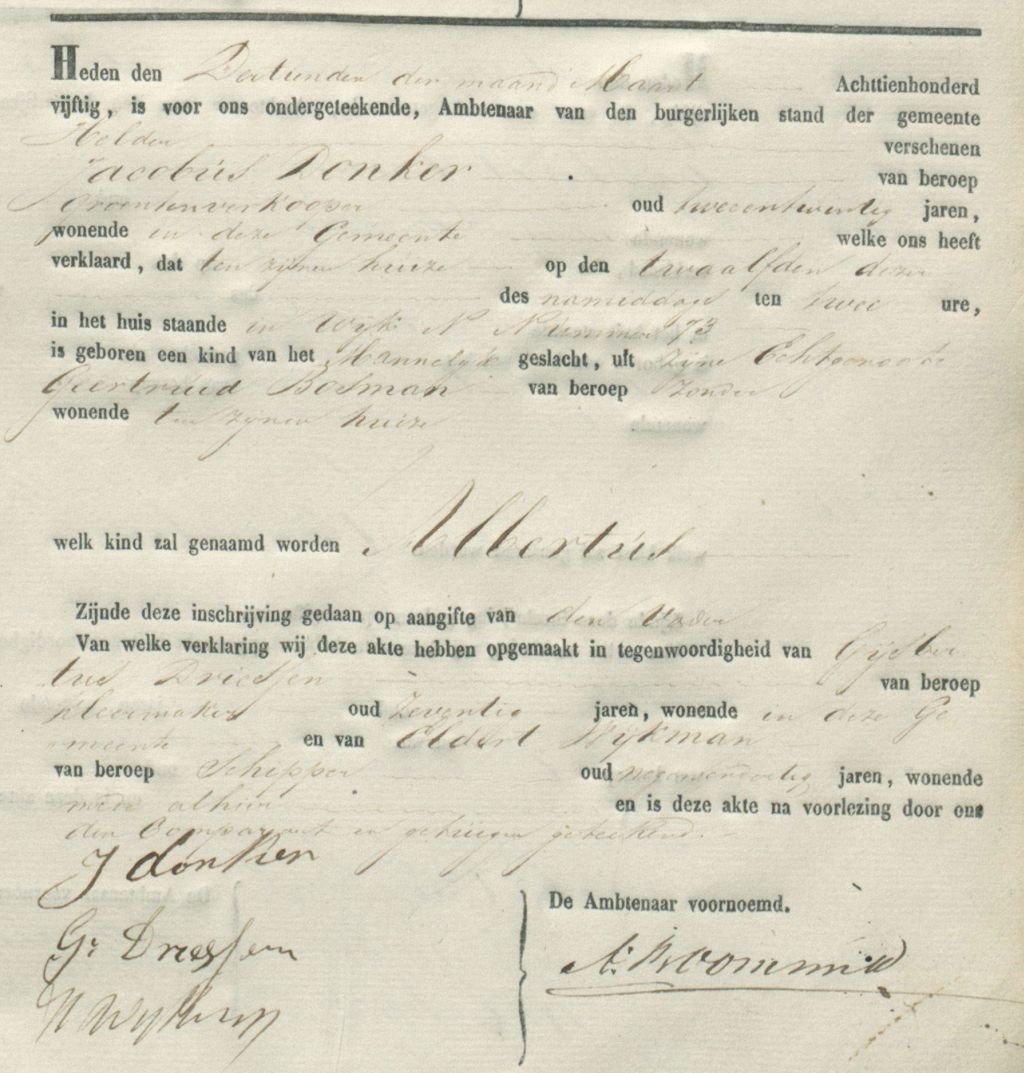 Heden den Dertienden der maand Maart Achttienhonderd
vijftig, is voor ons ondergeteekende, Ambtenaar van den burgerlijken stand der gemeente
Helder verschenen
Jacobus Donker van beroep
Groentenverkooper oud tweeentwintig jaren,
wonende in deze Gemeente welke ons heeft
verklaard, dat ten zijnen huize op den twaalfden dezer
des namiddags ten twee ure,
in het huis staande in Wijk N Nummer 73
is geboren een kind van het Mannelijk geslacht, uit zijne Echtgenoote
Geertruid Bosman van beroep zonder
wonende ten zijnen huize
welk kind zal genaamd worden Albertus
Zijnde deze inschrijving gedaan op aangifte van den Vader
Van welke verklaring wij deze akte hebben opgemaakt in tegenwoordigheid van Gijsber
tus Driessen van beroep
kleermaker oud Zeventig jaren, wonende in deze Ge
meente en van Eldert Wijkman
van beroep Schipper oud jaren, wonende
mede alhier en is deze akte na voorlezing door ons
den Comparant en getuigen geteekend.
J donker
Gs Driessen
Wijkman
De Ambtenaar voornoemd.